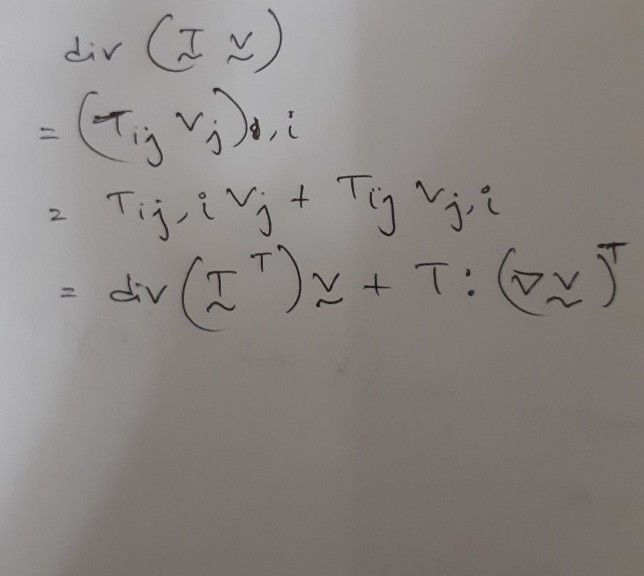 div (T̰ v̰)
= (Tij vj),i
= Tij,i vj + Tij vj,i
= div (T̰ᵀ) v̰ + T : (∇ v̰)ᵀ